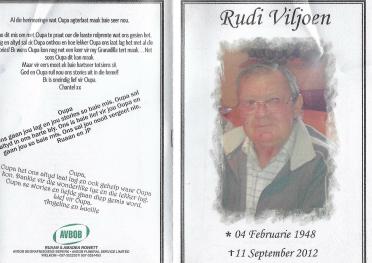 Al die herinneringe wat Oupa agterlaat maak baie seer nou.
dit mis om met Oupa te praat oor die laaste rolprente wat ons gesien het.
en altyd sal ek Oupa onthou en hoe lekker Oupa ons laat lag het met al die
Ek wens Oupa kan nog net een keer vir my Granadilla tert maak.... Net
soos Oupa dit kon maak.
Maar vir eers moet ek baie hartseer totsiens sê.
God en Oupa rol nou ons stories uit in die hemel!
Ek is oneindig lief vir Oupa.
Chantel xx
Oupa
Ons gaan jou lag en jou stories so baie mis. Oupa sal
altyd in ons harte bly. Ons is baie lief vir jou Oupa en
gaan jou so baie mis. Ons sal jou nooit vergeet nie.
Ruaan en JP
Oupa,
Oupa het ons altyd laat lag en ook gehelp waar Oupa
kon. Dankie vir die wonderlike tye en die lekker lag.
Oupa se stories en liefde gaan diep gemis word.
Lief vir Oupa.
Angeline en Lucille
AVBOB
Rudi Viljoen
* 04 Februarie 1948
†11 September 2012